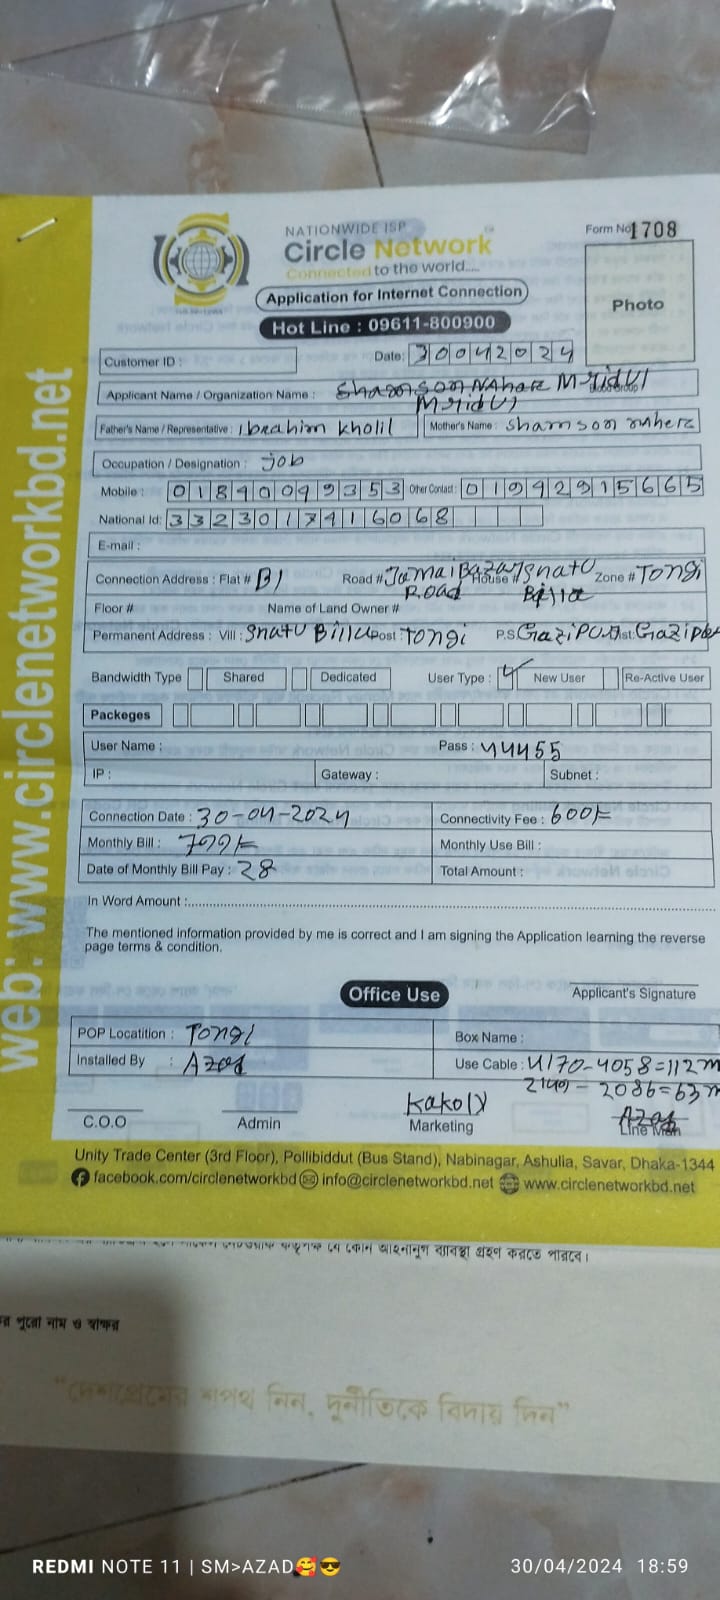 NATIONWIDE ISP
Circle Network
Connected to the world.....
Form No 1708
Application for Internet Connection
Photo
Hot Line : 09611-800900
Customer ID :
Date: 30042024
Applicant Name / Organization Name : Mridul
Mridul
Father's Name / Representative : Ibrahim kholil Mother's Name : Shamson naher
Occupation / Designation : job
Mobile : 01840099353 Other Contact : 01942915665
National Id: 3323017416068
E-mail :
Connection Address : Flat # B1 Road # Jamai Bazar House # Zone # Tongi
Road
Floor # Name of Land Owner #
Permanent Address : Vill : Post : Tongi P.S Gazipur Dist: Gazipur
Bandwidth Type Shared Dedicated User Type : New User Re-Active User
Packeges
User Name : Pass : 44455
IP : Gateway : Subnet :
Connection Date : 30-04-2024 Connectivity Fee : 600/=
Monthly Bill : Monthly Use Bill :
Date of Monthly Bill Pay : 28 Total Amount :
In Word Amount :
The mentioned information provided by me is correct and I am signing the Application learning the reverse
page terms & condition.
Office Use
Applicant's Signature
POP Locatition : Tongi Box Name :
Installed By : Azad Use Cable : 4170-4058=112m
2149 - 2086=63m
Kakoly
C.O.O Admin Marketing Line Man
Unity Trade Center (3rd Floor), Pollibiddut (Bus Stand), Nabinagar, Ashulia, Savar, Dhaka-1344
facebook.com/circlenetworkbd info@circlenetworkbd.net www.circlenetworkbd.net
web: www.circlenetworkbd.net
যে কোন আইনানুগ ব্যবস্থা গ্রহণ করতে পারবে।
পুরো নাম ও স্বাক্ষর
"দেশপ্রেমের শপথ নিন, দুর্নীতিকে বিদায় দিন"
REDMI NOTE 11 | SM>AZAD🥰😎
30/04/2024 18:59